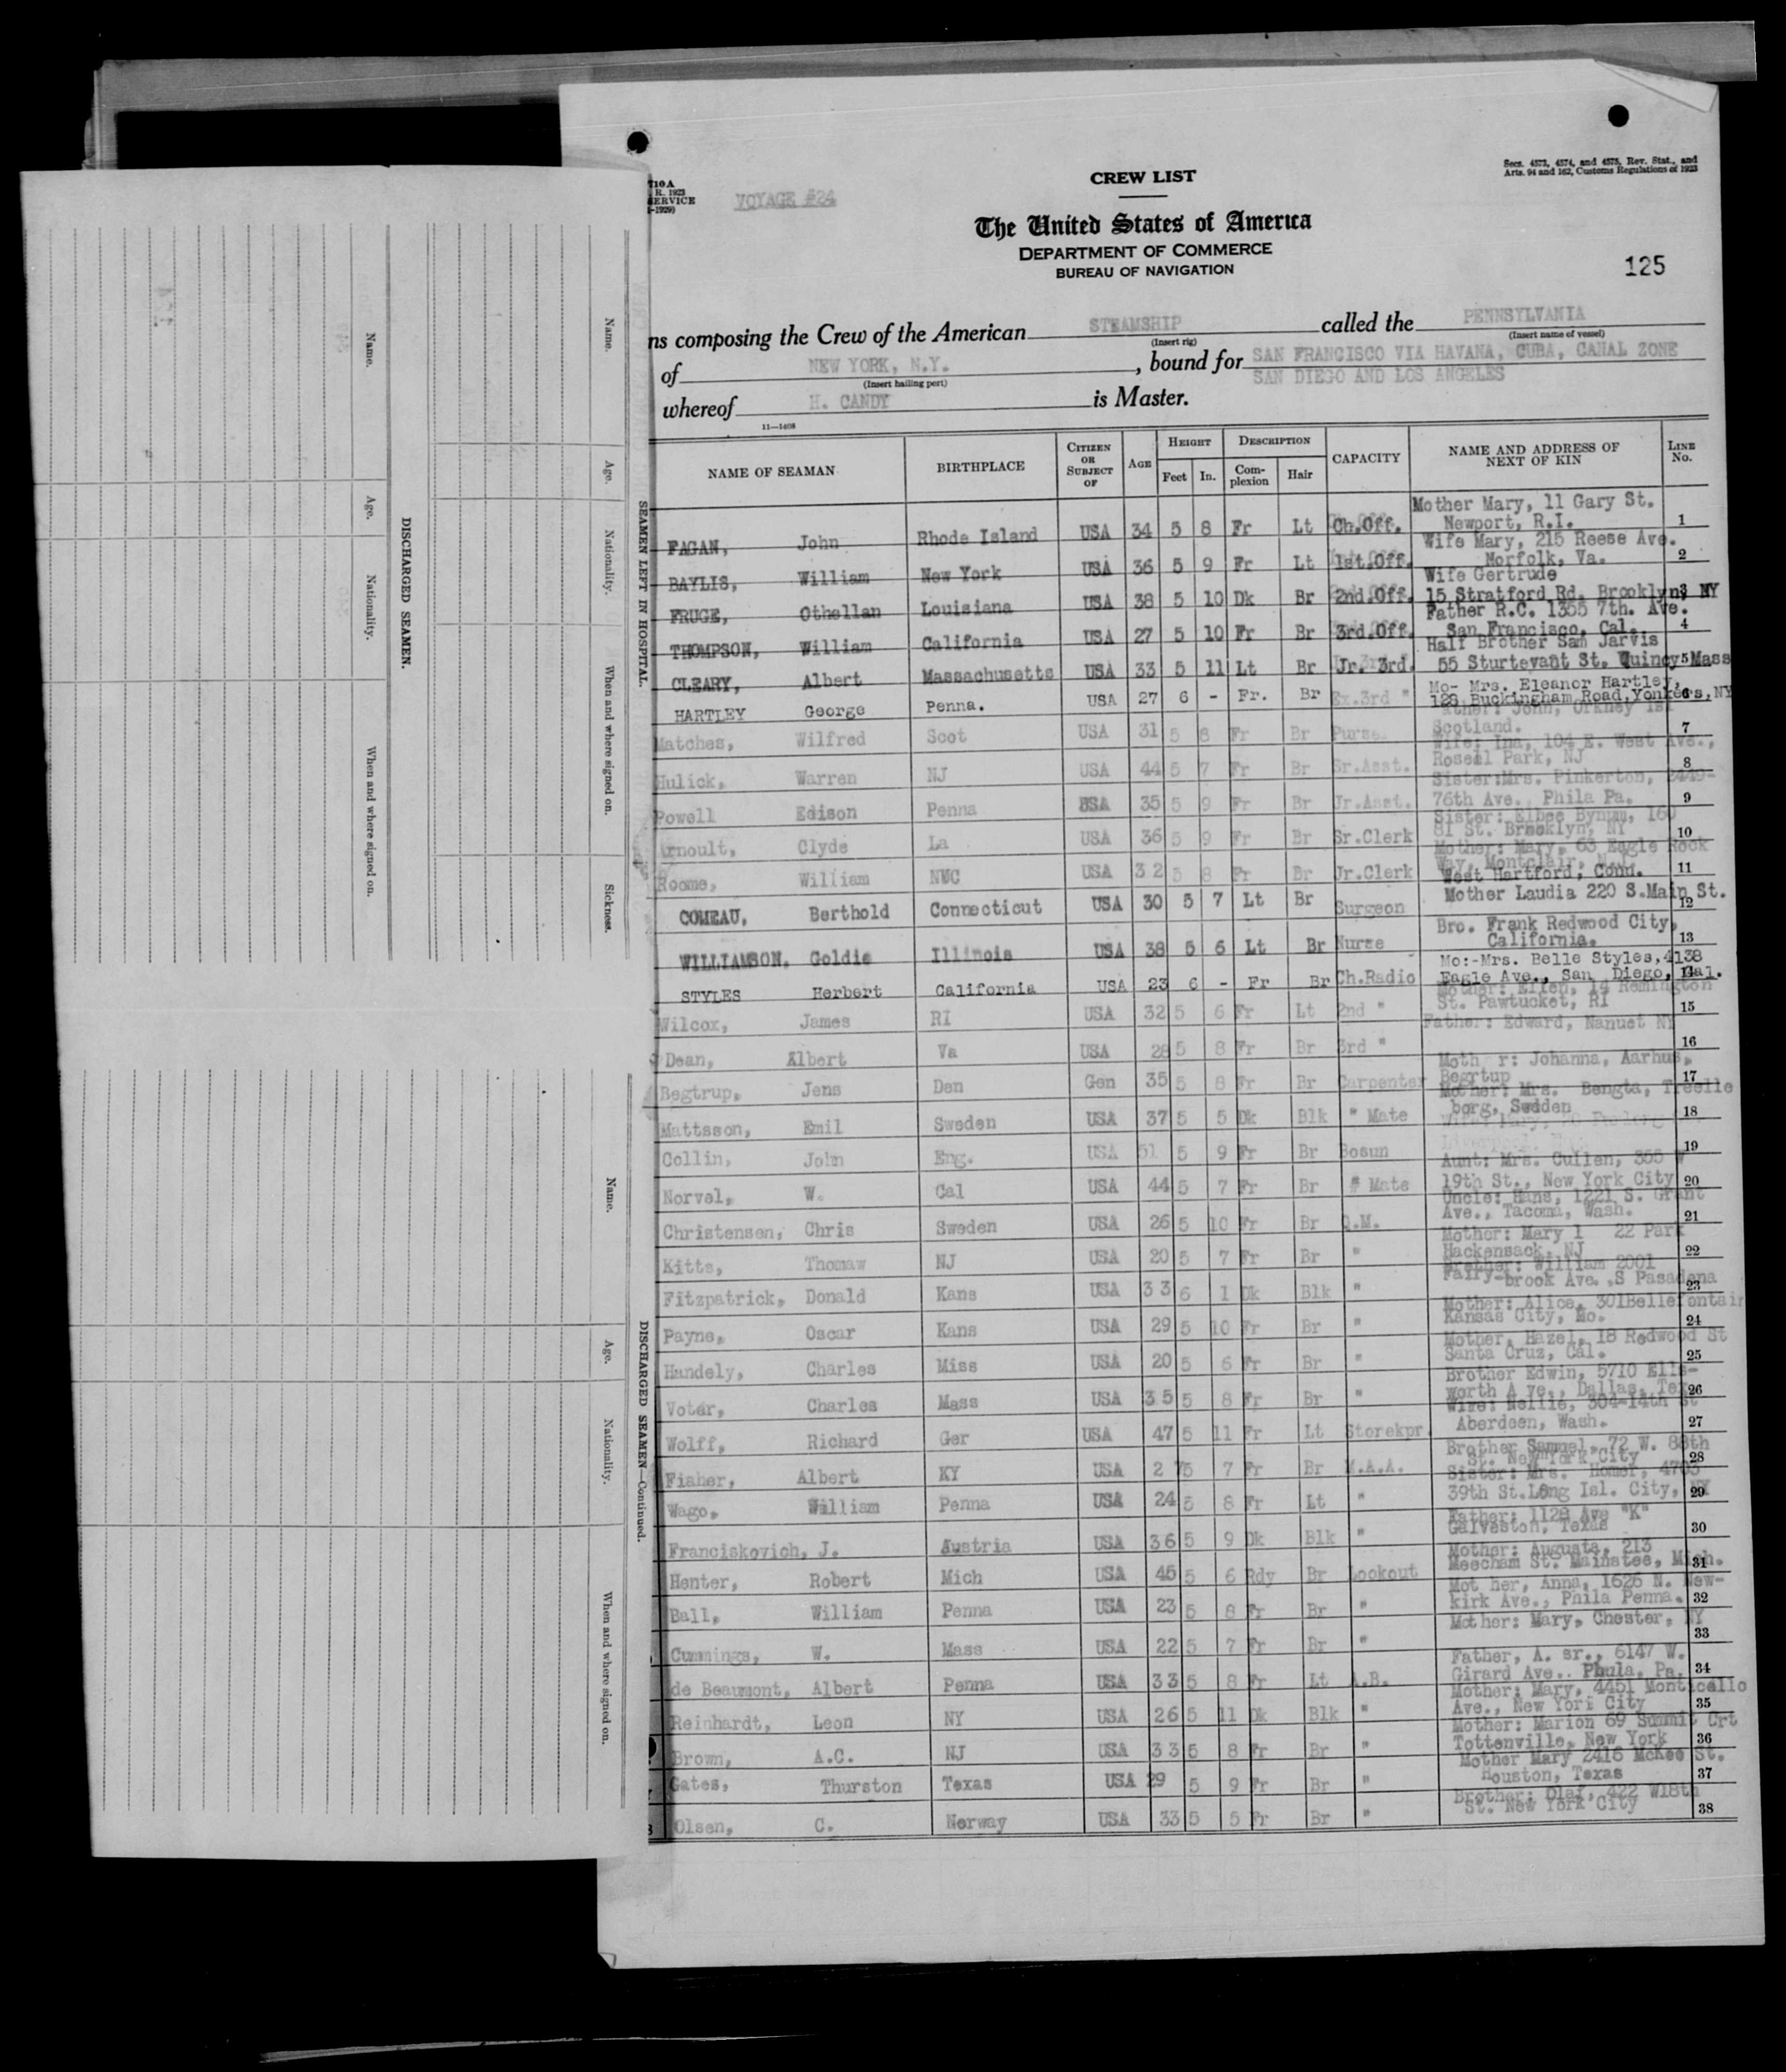 710A
R. 1923
SERVICE
-1929)
VOYAGE #24
CREW LIST
Secs. 4573, 4574, and 4575, Rev. Stat., and
Arts. 94 and 162, Customs Regulations of 1923
The United States of America
DEPARTMENT OF COMMERCE
BUREAU OF NAVIGATION
125
ns composing the Crew of the American STEAMSHIP called the PENNSYLVANIA
(Insert rig) (Insert name of vessel)
of NEW YORK, N.Y. , bound for SAN FRANCISCO VIA HAVANA, CUBA, CANAL ZONE
(Insert hailing port) SAN DIEGO AND LOS ANGELES
whereof H. CANDY is Master.
11—1408
NAME OF SEAMAN BIRTHPLACE CITIZEN OR SUBJECT OF AGE HEIGHT Feet In. DESCRIPTION Complexion Hair CAPACITY NAME AND ADDRESS OF NEXT OF KIN LINE No.
Mother Mary, 11 Gary St.
FAGAN, John Rhode Island USA 34 5 8 Fr Lt Ch.Off. Newport, R.I. 1
Wife Mary, 215 Reese Ave.
BAYLIS, William New York USA 36 5 9 Fr Lt 1st.Off. Norfolk, Va. 2
Wife Gertrude
FRUGE, Othellan Louisiana USA 38 5 10 Dk Br 2nd.Off. 15 Stratford Rd. Brooklyn, NY 3
Father R.C. 1355 7th. Ave.
THOMPSON, William California USA 27 5 10 Fr Br 3rd.Off. San Francisco, Cal. 4
Half Brother Sam Jarvis
CLEARY, Albert Massachusetts USA 33 5 11 Lt Br Jr. 3rd. 55 Sturtevant St. Quincy Mass 5
Mo- Mrs. Eleanor Hartley,
HARTLEY George Penna. USA 27 6 - Fr. Br Ex.3rd " 128 Buckingham Road, Yonkers, NY 6
Father: John, Orkney Isl
Matches, Wilfred Scot USA 31 5 8 Fr Br Purse Scotland. 7
Wife: Ina, 104 E. West Ave.,
Hulick, Warren NJ USA 44 5 7 Fr Br Sr.Asst. Rosell Park, NJ 8
Sister:Mrs. Pinkerton, 2449-
Powell Edison Penna USA 35 5 9 Fr Br Jr.Asst. 76th Ave., Phila Pa. 9
Sister: Elbee Bynum, 160
Arnoult, Clyde La USA 36 5 9 Fr Br Sr.Clerk 81 St. Brooklyn, NY 10
Mother: Mary, 63 Eagle Rock
Roome, William NYC USA 32 5 8 Fr Br Jr.Clerk Way, Montclair, N.J. 11
West Hartford, Conn.
COMEAU, Berthold Connecticut USA 30 5 7 Lt Br Surgeon Mother Laudia 220 S.Main St. 12
Bro. Frank Redwood City,
WILLIAMSON, Goldie Illinois USA 38 5 6 Lt Br Nurse California. 13
Mo:-Mrs. Belle Styles, 4138
STYLES Herbert California USA 23 6 - Fr Br Ch.Radio Eagle Ave., San Diego, Cal. 14
Mother: Ellen, 14 Remington
Wilcox, James RI USA 32 5 6 Fr Lt 2nd " St. Pawtucket, RI 15
Father: Edward, Nanuet NY
Dean, Albert Va USA 28 5 8 Fr Br 3rd " 16
Moth r: Johanna, Aarhus,
Begtrup, Jens Den Gen 35 5 8 Fr Br Carpenter Begrtup 17
Mother: Mrs. Bengta, Treelle
Mattsson, Emil Sweden USA 37 5 5 Dk Blk " Mate borg, Sweden 18
Collin, John Eng. USA 51 5 9 Fr Br Bosun 19
Aunt: Mrs. Cullen, 355 W
Norvel, W. Cal USA 44 5 7 Fr Br " Mate 19th St., New York City 20
Uncle: Hans, 1221 S. Grant
Christensen, Chris Sweden USA 26 5 10 Fr Br Q.M. Ave., Tacoma, Wash. 21
Mother: Mary 1 22 Park
Kitts, Thomaw NJ USA 20 5 7 Fr Br " Hackensack, NJ 22
Brother: William 2001
Fitzpatrick, Donald Kans USA 33 6 1 Dk Blk " Fairy-brook Ave.,S Pasadena 23
Mother: Alice, 301Bellefontain
Payne, Oscar Kans USA 29 5 10 Fr Br " Kansas City, Mo. 24
Mother, Hazel, 18 Redwood St
Handely, Charles Miss USA 20 5 6 Fr Br " Santa Cruz, Cal. 25
Brother Edwin, 5710 Ells-
Voter, Charles Mass USA 35 5 8 Fr Br " worth A ve., Dallas, Tex 26
Wife: Nellie, 304-14th St
Wolff, Richard Ger USA 47 5 11 Fr Lt Storekpr. Aberdeen, Wash. 27
Brother Samuel, 72 W. 88th
Fisher, Albert KY USA 2 5 7 Fr Br M.A.A. St. New York City 28
Sister: Mrs. Homer, 4703
Wago, William Penna USA 24 5 8 Fr Lt " 39th St.Long Isl. City, NY 29
Father: 1128 Ave "K"
Franciskovich, J. Austria USA 36 5 9 Dk Blk " Galveston, Texas 30
Mother: Augusta, 213
Henter, Robert Mich USA 45 5 6 Rdy Br Lookout Meecham St. Mainstee, Mich. 31
Mot her, Anna, 1626 N. New-
Ball, William Penna USA 23 5 8 Fr Br " kirk Ave., Phila Penna. 32
Mother: Mary, Chester, NY
Cummings, W. Mass USA 22 5 7 Fr Br " 33
Father, A. sr., 6147 W.
de Beaumont, Albert Penna USA 33 5 8 Fr Lt A.B. Girard Ave.. Phula, Pa. 34
Mother: Mary, 4451 Monticello
Reinhardt, Leon NY USA 26 5 11 Dk Blk " Ave., New York City 35
Mother: Marion 69 Summit Crt
Brown, A.C. NJ USA 33 5 8 Fr Br " Tottenville, New York 36
Mother Mary 2416 McKee St.
Gates, Thurston Texas USA 29 5 9 Fr Br " Houston, Texas 37
Brother: Olaf, 422 W18th
Olsen, C. Norway USA 33 5 5 Fr Br " St. New York City 38
SEAMEN LEFT IN HOSPITAL.
Name. Age. Nationality. When and where signed on. Sickness.
DISCHARGED SEAMEN.
Name. Age. Nationality. When and where signed on.
DISCHARGED SEAMEN—Continued.
Name. Age. Nationality. When and where signed on.